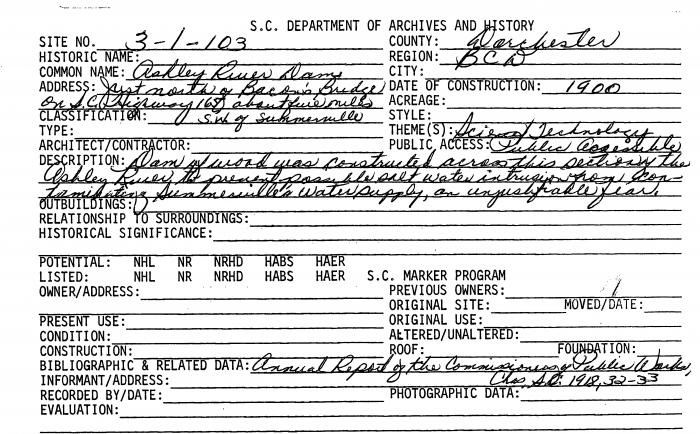 S.C. DEPARTMENT OF ARCHIVES AND HISTORY
SITE NO. 3-1-103 COUNTY: Dorchester
HISTORIC NAME: REGION: BCD
COMMON NAME: Ashley River Dam CITY:
ADDRESS: Just north of Bacon's Bridge DATE OF CONSTRUCTION: 1900
on S.C. Highway 165, about five miles ACREAGE:
CLASSIFICATION: S.W. of Summerville STYLE:
TYPE: THEME(S): Science/Technology
ARCHITECT/CONTRACTOR: PUBLIC ACCESS: Public Accessible
DESCRIPTION: Dam of wood was constructed across this section of the
Ashley River to prevent possible salt water intrusion from con-
taminating Summerville's water supply, an unjustifiable fear.
OUTBUILDINGS:
RELATIONSHIP TO SURROUNDINGS:
HISTORICAL SIGNIFICANCE:
POTENTIAL: NHL NR NRHD HABS HAER
LISTED: NHL NR NRHD HABS HAER S.C. MARKER PROGRAM
OWNER/ADDRESS: PREVIOUS OWNERS:
ORIGINAL SITE: MOVED/DATE:
PRESENT USE: ORIGINAL USE:
CONDITION: ALTERED/UNALTERED:
CONSTRUCTION: ROOF: FOUNDATION:
BIBLIOGRAPHIC & RELATED DATA: Annual Report of the Commissioners of Public Works,
INFORMANT/ADDRESS: Chas. S.C. 1918, 32-33
RECORDED BY/DATE: PHOTOGRAPHIC DATA:
EVALUATION: